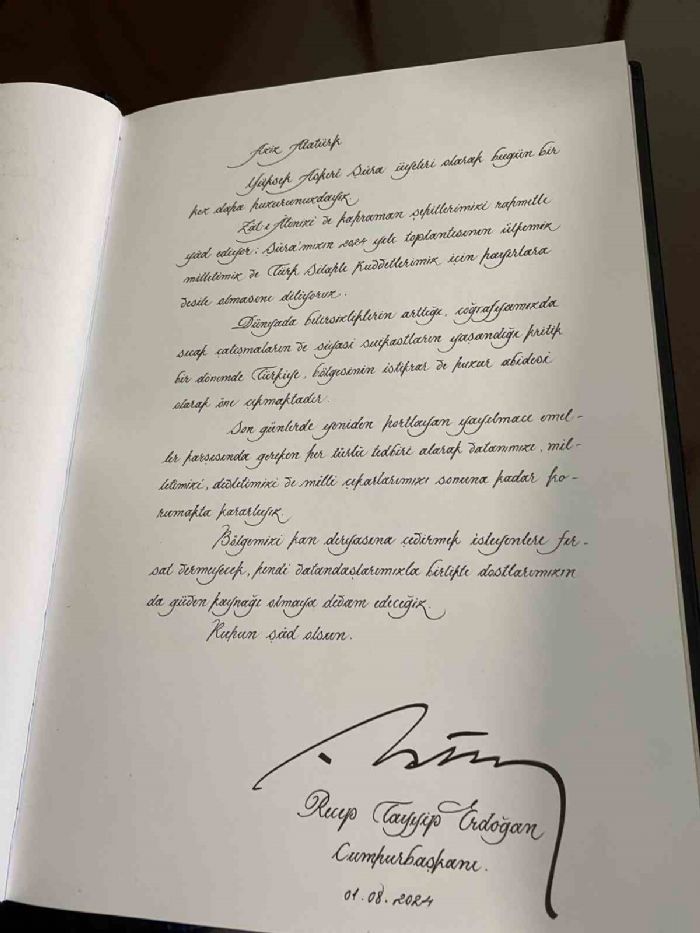 Aziz Atatürk
Yüksek Askeri Şûra üyeleri olarak bugün bir
kez daha huzurunuzdayız.
Zat-ı Âlinizi ve kahraman şehitlerimizi rahmetle
yâd ediyor; Şûra'mızın 2024 yılı toplantısının ülkemiz
milletimiz ve Türk Silahlı Kuvvetlerimiz için hayırlara
vesile olmasını diliyoruz.
Dünyada belirsizliklerin arttığı, coğrafyamızda
sıcak çatışmaların ve siyasi suikastların yaşandığı kritik
bir dönemde Türkiye, bölgesinin istikrar ve huzur abidesi
olarak öne çıkmaktadır.
Son günlerde yeniden hortlayan yayılmacı emel-
ler karşısında gereken her türlü tedbiri alarak vatanımızı, mil-
letimizi, devletimizi ve milli çıkarlarımızı sonuna kadar ko-
rumakta kararlıyız.
Bölgemizi kan deryasına çevirmek isteyenlere fır-
sat vermeyecek, kendi vatandaşlarımızla birlikte dostlarımızın
da güven kaynağı olmaya devam edeceğiz.
Ruhun şâd olsun.
Recep Tayyip Erdoğan
Cumhurbaşkanı.
01.08.2024